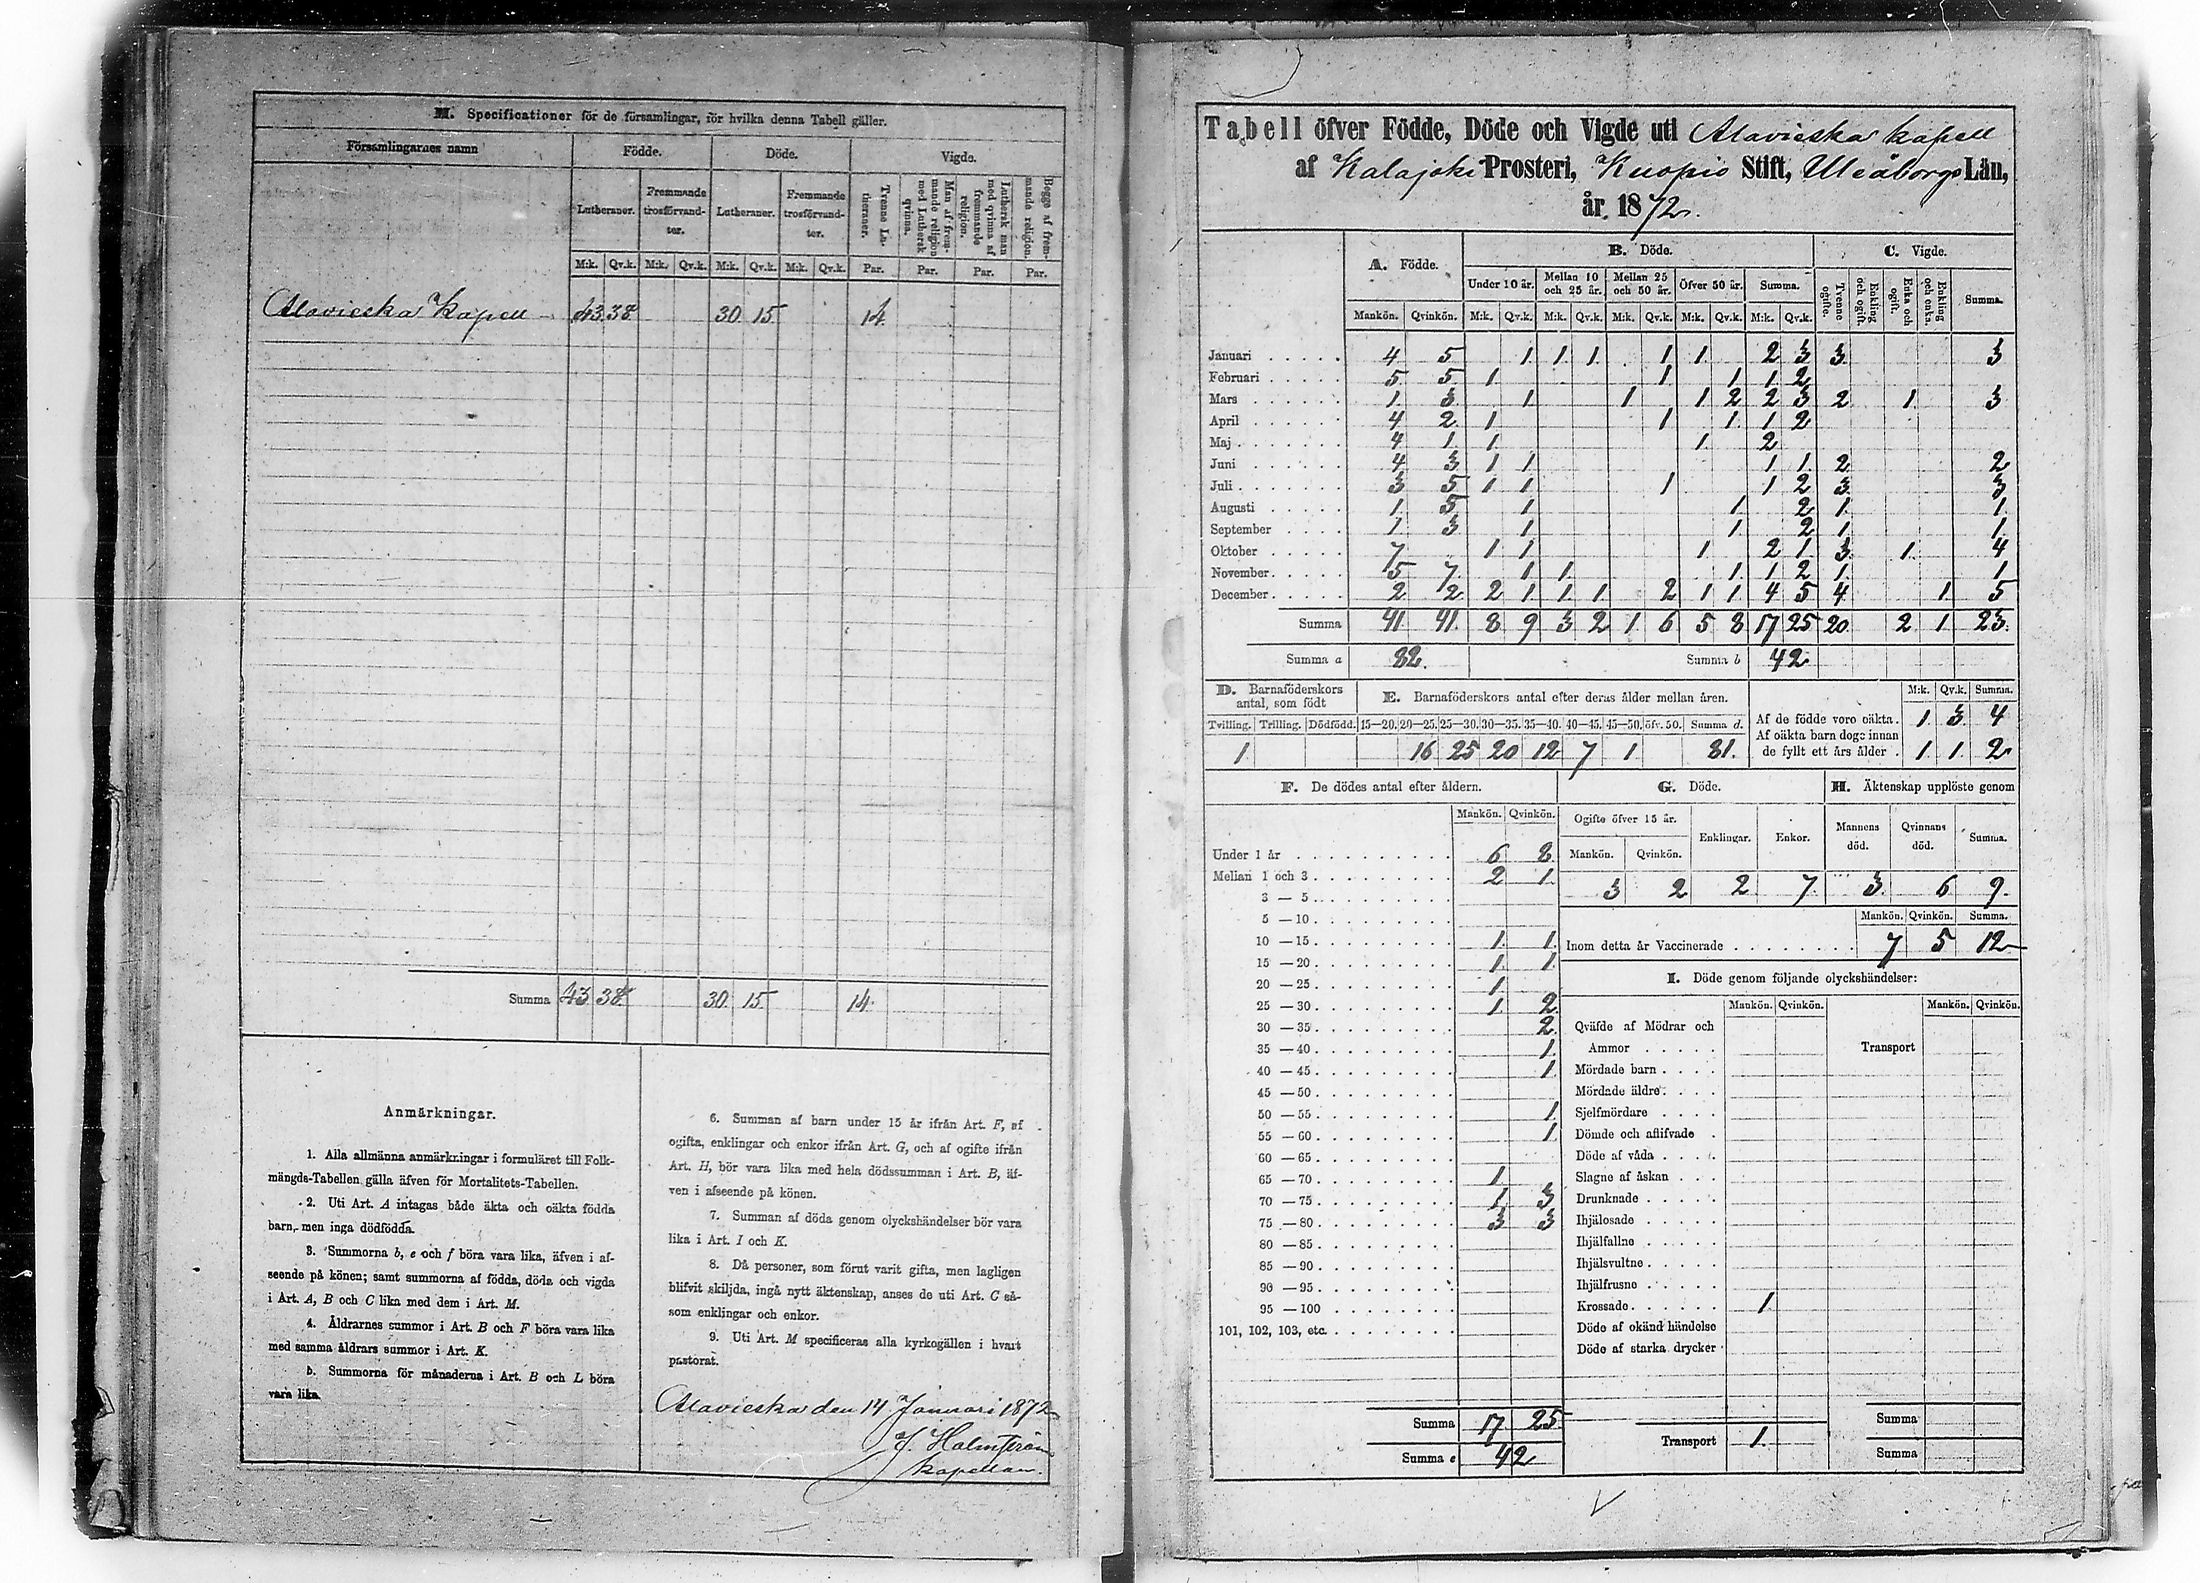 M. Specificationer för de församlingar, för hvilka denna Tabell gäller.
Församlingarnes namn Födde. Döde. Vigde.
Lutheraner. Fremmande trosförvandter. Lutheraner. Fremmande trosförvandter. Trenne Lutheraner. Man af fremmande religion med Luthersk qvinna. Luthersk man med qvinna af fremmande religion. Begge af fremmande religion.
M:k. Qv.k. M:k. Qv.k. M:k. Qv.k. M:k. Qv.k. Par. Par. Par. Par.
Alavieska Kapell 43 38 30 15 14
Summa 43 38 30 15 14
Anmärkningar.
1. Alla allmänna anmärkningar i formuläret till Folk-
mängds-Tabellen gälla äfven för Mortalitets-Tabellen.
2. Uti Art. A intagas både äkta och oäkta födda
barn, men inga dödfödda.
3. Summorna b, e och f böra vara lika, äfven i af-
seende på könen; samt summorna af födda, döda och vigda
i Art. A, B och C lika med dem i Art. M.
4. Åldrarnes summor i Art. B och F böra vara lika
med samma åldrars summor i Art. K.
5. Summorna för månaderna i Art. B och L böra
vara lika.
6. Summan af barn under 15 år ifrån Art. F, af
ogifta, enklingar och enkor ifrån Art. G, och af ogifte ifrån
Art. H, bör vara lika med hela dödssumman i Art. B, äf-
ven i afseende på könen.
7. Summan af döda genom olyckshändelser bör vara
lika i Art. I och K.
8. Då personer, som förut varit gifta, men lagligen
blifvit skiljda, ingå nytt äktenskap, anses de uti Art. C så-
som enklingar och enkor.
9. Uti Art. M specificeras alla kyrkogällen i hvart
pastorat.
Alavieska den 14 Januari 1872
J. Holmström
kapellan.
Tabell öfver Födde, Döde och Vigde uti Alavieska kapell
af Kalajoki Prosteri, Kuopio Stift, Uleåborgs Län,
år 1872.
A. Födde. B. Döde. C. Vigde.
Under 10 år. Mellan 10 och 25 år. Mellan 25 och 50 år. Öfver 50 år. Summa. Trenne ogifte. Enkling och ogift. Enka och ogift. Enkling och enka. Summa.
Mankön. Qvinkön. M:k. Qv.k. M:k. Qv.k. M:k. Qv.k. M:k. Qv.k. M:k. Qv.k.
Januari 4 5 1 1 1 1 1 2 3 3 3
Februari 5 5 1 1 1 1 2
Mars 1 3 1 1 1 2 2 3 2 1 3
April 4 2 1 1 1 1 2
Maj 4 1 1 1 2
Juni 4 3 1 1 1 1 2 2
Juli 3 5 1 1 1 1 2 3 3
Augusti 1 5 1 1 2 1 1
September 1 3 1 1 2 1 1
Oktober 7 1 1 1 2 1 3 1 4
November 5 7 1 1 1 1 2 1 1
December 2 2 2 1 1 1 2 1 1 4 5 4 1 5
Summa 41 41 8 9 3 2 1 6 5 8 17 25 20 2 1 23
Summa a 82. Summa b 42
D. Barnaföderskors antal, som födt
E. Barnaföderskors antal efter deras ålder mellan åren.
M:k. Qv.k. Summa.
Tvilling. Trilling. Dödfödd. 15—20. 20—25. 25—30. 30—35. 35—40. 40—45. 45—50. öfv. 50. Summa d.
1 16 25 20 12 7 1 81.
Af de födde voro oäkta. 1 3 4
Af oäkta barn dogo innan
de fyllt ett års ålder. 1 1 2
F. De dödes antal efter åldern.
Mankön. Qvinkön.
Under 1 år 6 8
Mellan 1 och 3 2 1
3 — 5
5 — 10
10 — 15 1 1
15 — 20 1 1
20 — 25 1
25 — 30 1 2
30 — 35 2
35 — 40 1
40 — 45 1
45 — 50
50 — 55 1
55 — 60 1
60 — 65
65 — 70 1
70 — 75 1 3
75 — 80 3 3
80 — 85
85 — 90
90 — 95
95 — 100
101, 102, 103, etc.
Summa 17 25
Summa e 42
G. Döde.
Ogifte öfver 15 år. Enklingar. Enkor.
Mankön. Qvinkön.
3 2 2 7
H. Äktenskap upplöste genom
Mannens död. Qvinnans död. Summa.
3 6 9.
Mankön. Qvinkön. Summa.
Inom detta år Vaccinerade 7 5 12
I. Döde genom följande olyckshändelser:
Mankön. Qvinkön. Mankön. Qvinkön.
Qväfde af Mödrar och
Ammor Transport
Mördade barn
Mördade äldre
Sjelfmördare
Dömde och aflifvade
Döde af våda
Slagne af åskan
Drunknade
Ihjälosade
Ihjälfallne
Ihjälsvultne
Ihjälfrusne
Krossade 1
Döde af okänd händelse
Döde af starka drycker
Summa
Transport 1.
Summa